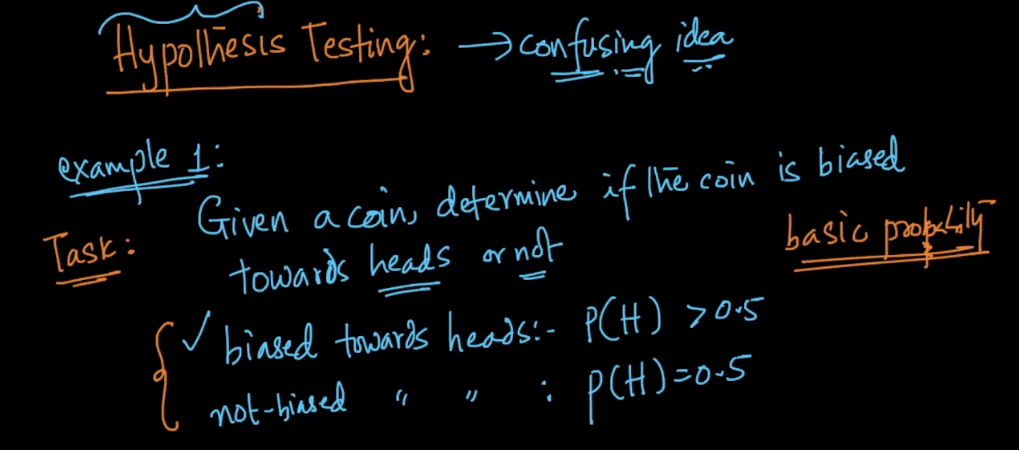 Hypothesis Testing: → confusing idea
example 1:
Given a coin, determine if the coin is biased
Task:
towards heads or not
basic probability
✓ biased towards heads:- P(H) > 0.5
not-biased " " : P(H)=0.5